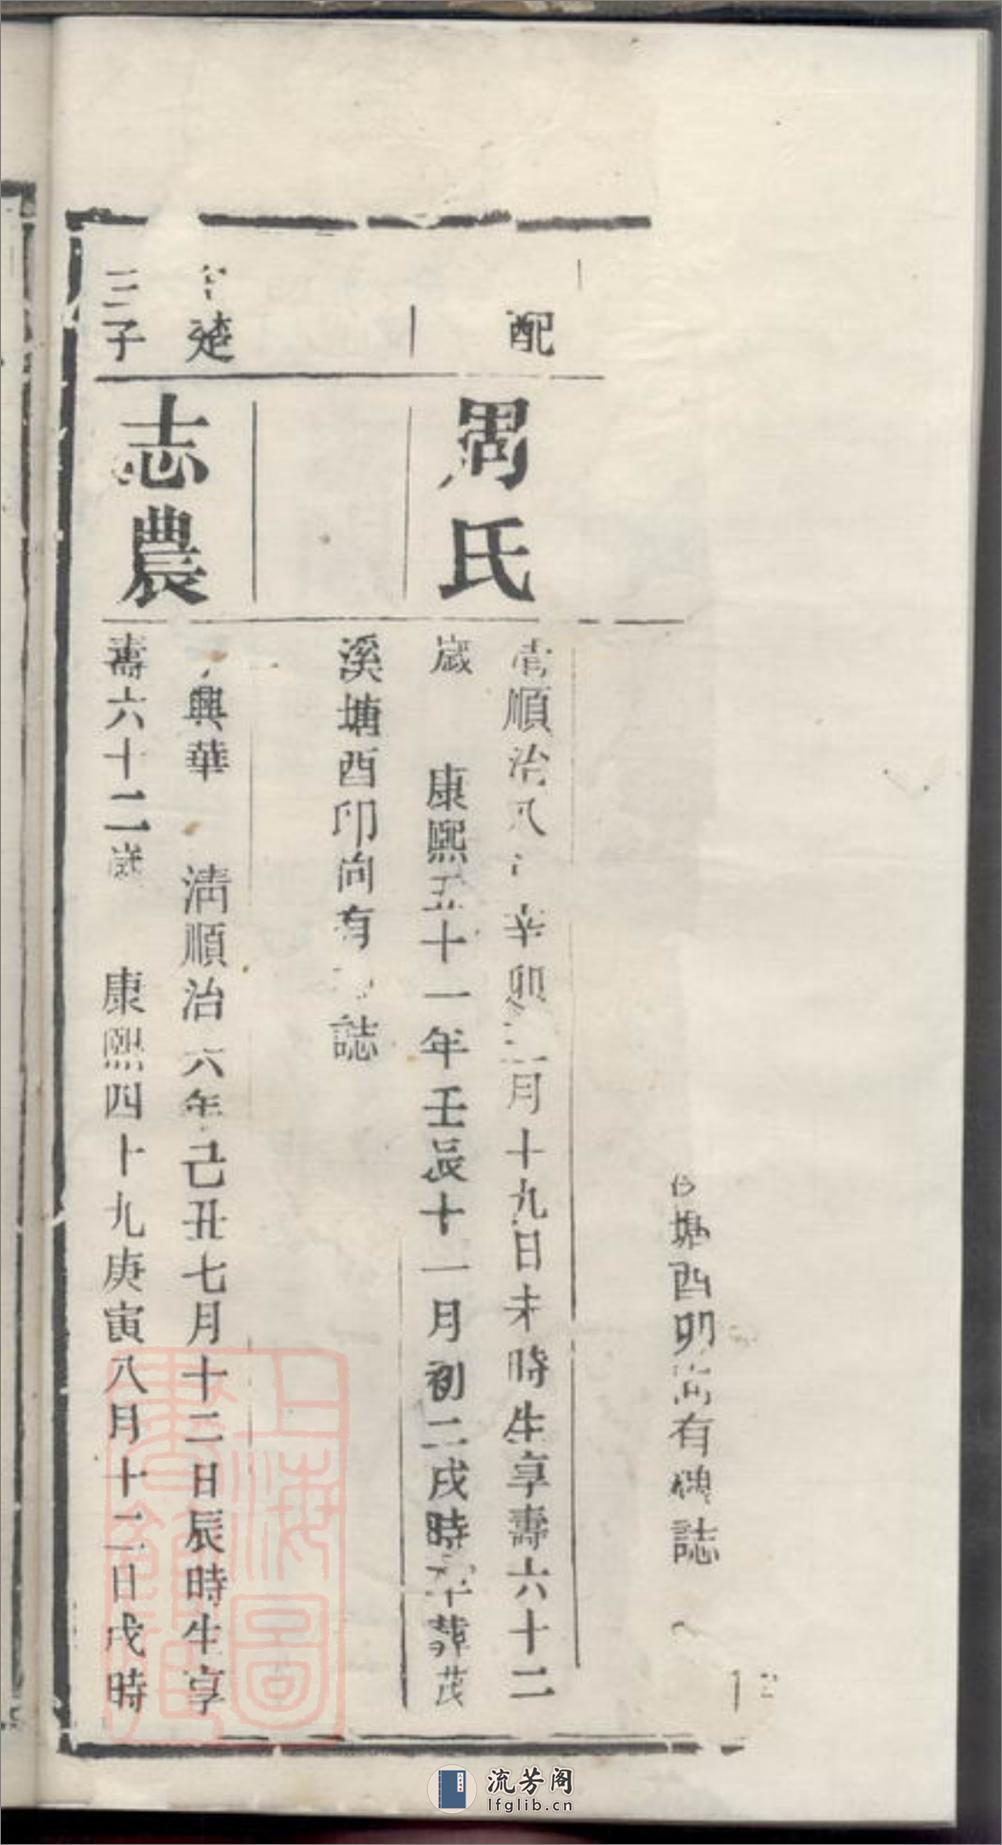 塘酉卯尚有碑誌
配
周氏
清順治八 辛卯 月十九日未時生享壽六十二
歲 康熙五十一年壬辰十一月初二戌時卒葬茂
溪塘酉卯尚有 誌
楚
三子
志農
興華 清順治六年己丑七月十二日辰時生享
壽六十二歲 康熙四十九庚寅八月十二日戌時
上海圖書館藏
流芳阁
lfglib.cn